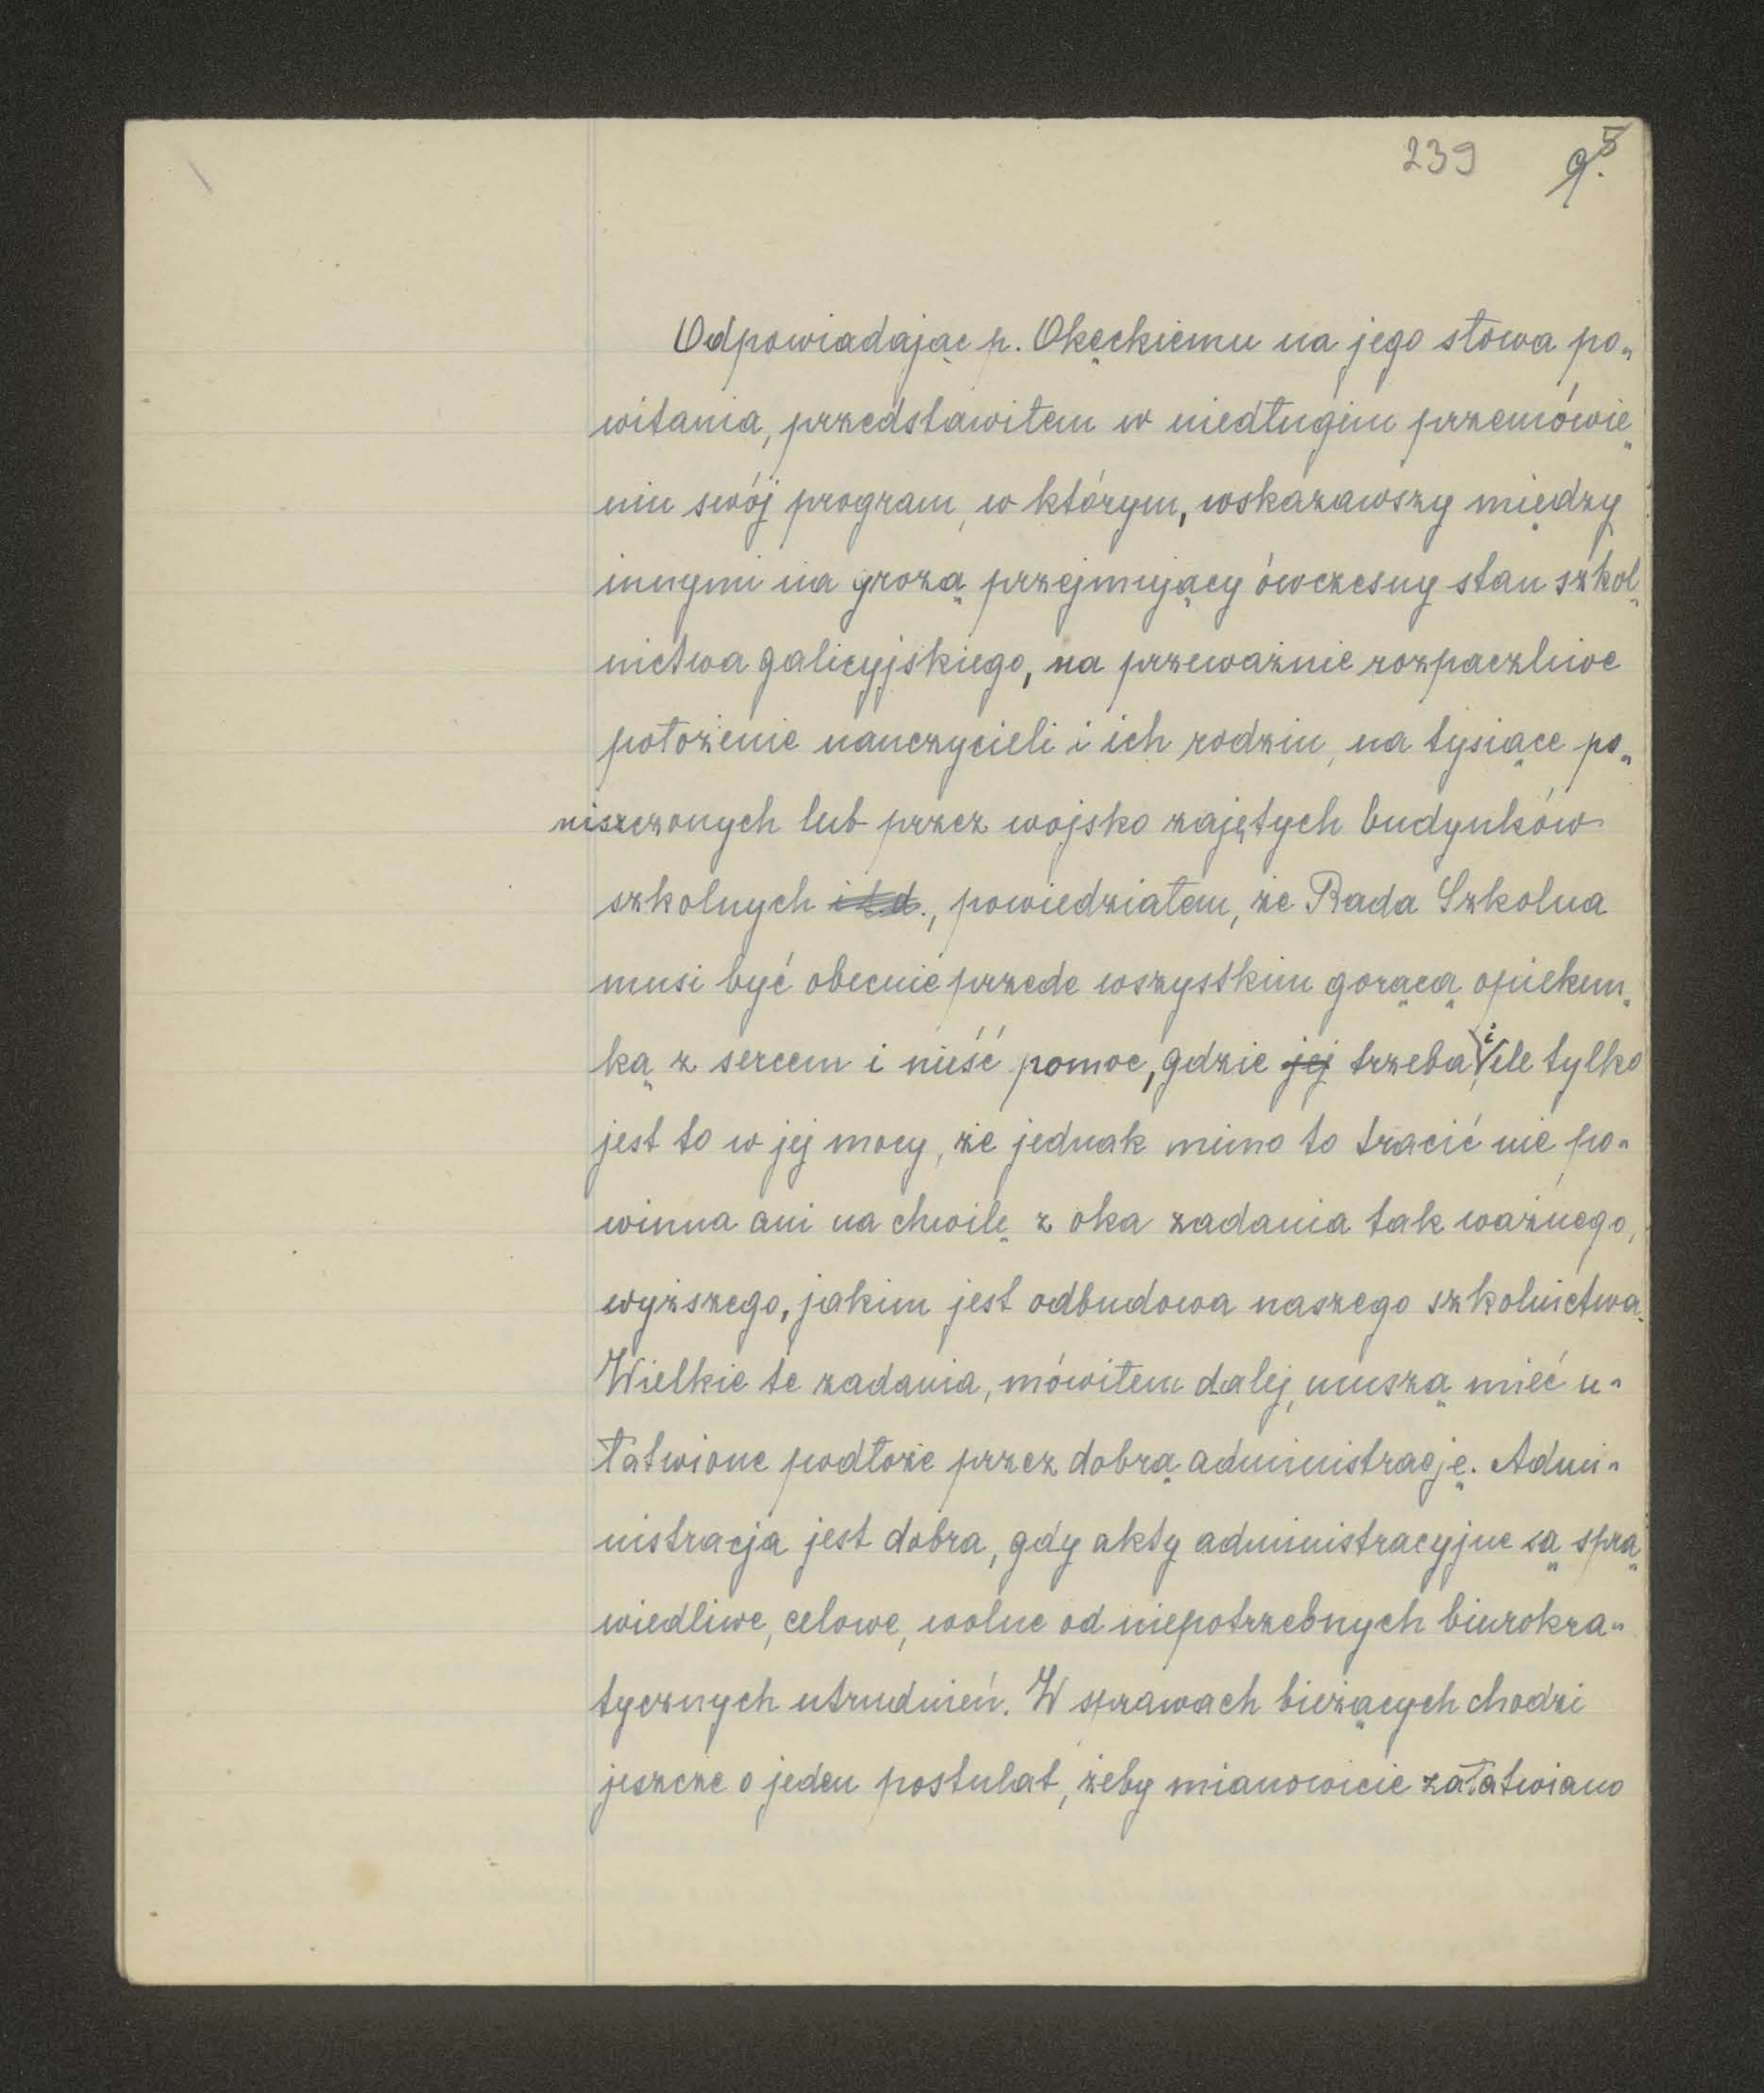 239 9.5
Odpowiadając p. Okęckiemu na jego słowa po-
witania, przedstawiłem w niedługim przemówie-
niu swój program, w którym, wskazawszy między
innymi na grozą przejmujący ówczesny stan szkol-
nictwa galicyjskiego, na przeważnie rozpaczliwe
położenie nauczycieli i ich rodzin, na tysiące po-
niszczonych lub przez wojsko zajętych budynków
szkolnych i t.d., powiedziałem, że Rada Szkolna
musi być obecnie przede wszystkim gorącą opiekun-
ką z sercem i nieść pomoc, gdzie jej trzeba i ile tylko
jest to w jej mocy, że jednak mimo to tracić nie po-
winna ani na chwilę z oka zadania tak ważnego,
wyższego, jakim jest odbudowa naszego szkolnictwa.
Wielkie te zadania, mówiłem dalej, muszą mieć u-
łatwione podłoże przez dobrą administrację. Admi-
nistracja jest dobra, gdy akty administracyjne są spra-
wiedliwe, celowe, wolne od niepotrzebnych biurokra-
tycznych utrudnień. W sprawach bieżących chodzi
jeszcze o jeden postulat, żeby mianowicie załatwiano